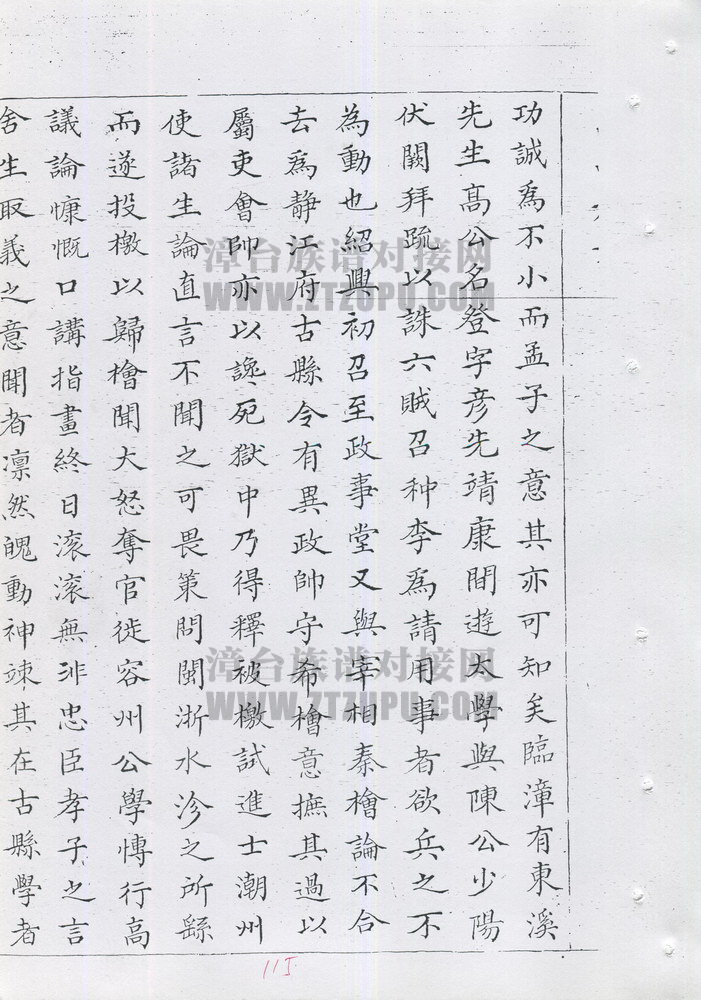 功誠爲不小而孟子之意其亦可知矣臨漳有東溪
先生髙公名登字彦先靖康間遊大學與陳公少陽
伏闕拜疏以誅六賊召种李爲請用事者欲兵之不
為動也紹興初召至政事堂又與宰相秦檜論不合
去爲静江府古縣令有異政帥守希檜意摭其過以
屬吏會帥亦以讒死獄中乃得釋被檄試進士潮州
使諸生論直言不聞之可畏策問閩浙水沴之所繇
而遂投檄以歸檜聞大怒奪官徙容州公學慱行高
議論慷慨口講指畫終日滚滚無非忠臣孝子之言
舍生取義之意聞者凛然魄動神竦其在古縣學者
漳台族谱对接网
WWW.ZTZUPU.COM
漳台族谱对接网
WWW.ZTZUPU.COM
115